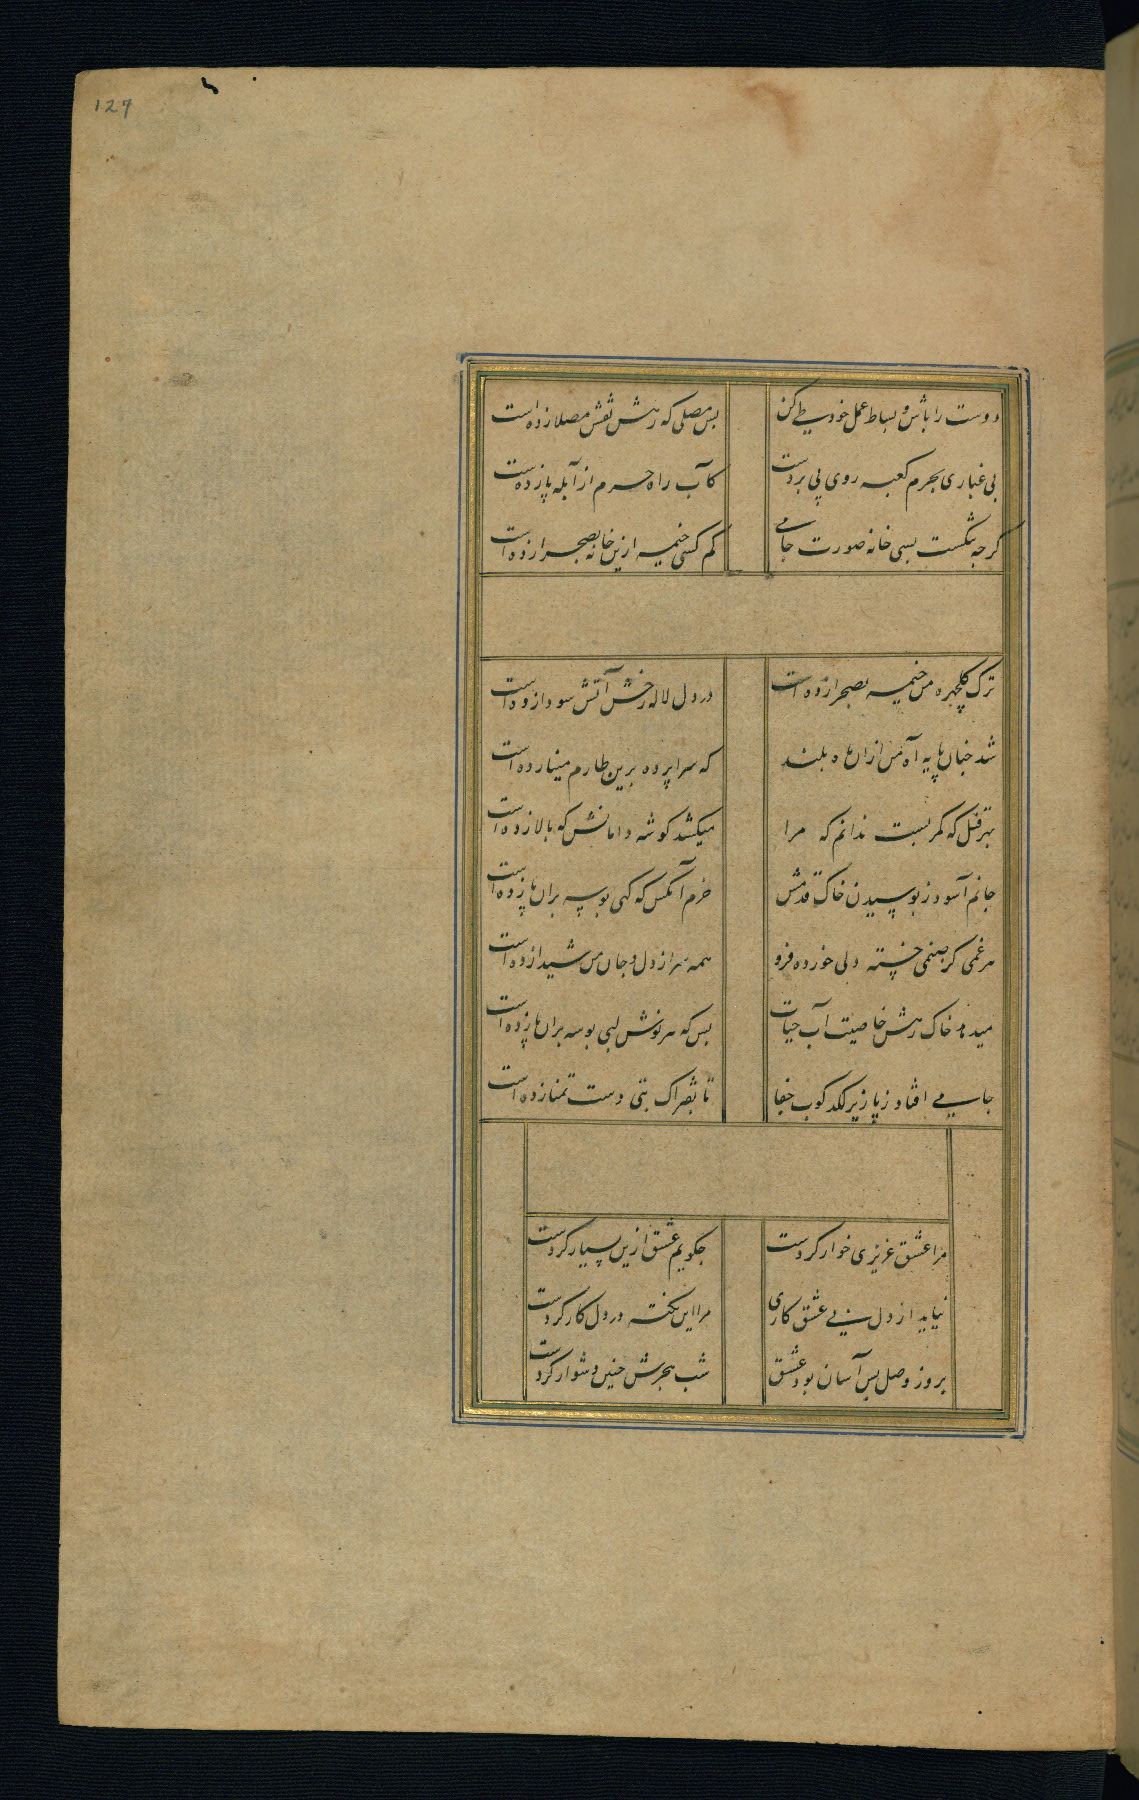 127
دوست را باش و بساط عمل خود طی کن بس مصلی که رهش نقش مصلا زده است
بی غباری بحرم کعبه روی پی بردست کآب راه حرم از آبله پا زده است
کرچه بشکست بسی خانه صورت جامی کم کسی خیمه ازین خانه بصحرا زده است
ترک کلچهره من خیمه بصحرا زده است در دل لاله رخش آتش سودا زده است
شد چنان پایه آه من ازان ماه بلند که سراپرده برین طارم مینا زده است
بهر قتل که کمر بست ندانم که مرا میکشد کوشه دامانش که بالا زده است
جانم آسود ز بوسیدن خاک قدمش خرم آنکس که کهی بوسه بران پا زده است
هر غمی کز صنمی خسته دلی خورده فرو همه سر از دل و جان من شیدا زده است
میدهد خاک رهش خاصیت آب حیات بس که هر نوش لبی بوسه بران پا زده است
جامی افتاد ز پا زیر لکد کوب جفا تا بفتراک بتی دست تمنا زده است
مرا عشق عزیزی خوار کردست چکویم عشق ازین بسیار کردست
نیاید از دل بی عشق کاری مرا این نکته در دل کار کردست
بروز وصل بس آسان بود عشق شب هجرش چنین دشوار کردست